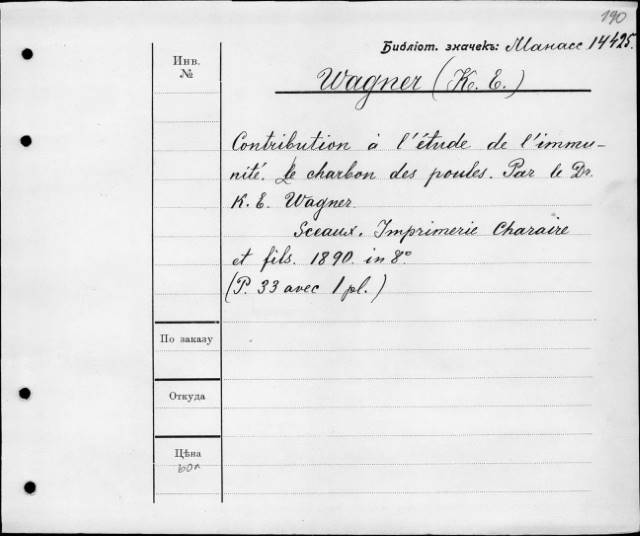 190
Библіот. значекъ: Манасс 14425.
Инв.
№
Wagner (K. E.)
Contribution à l'étude de l'immu-
nité. Le charbon des poules. Par le Dr.
K. E. Wagner
Sceaux. Imprimerie Charaire
et fils. 1890. in 8°
(P. 33 avec 1 pl.)
По заказу
Откуда
Цѣна